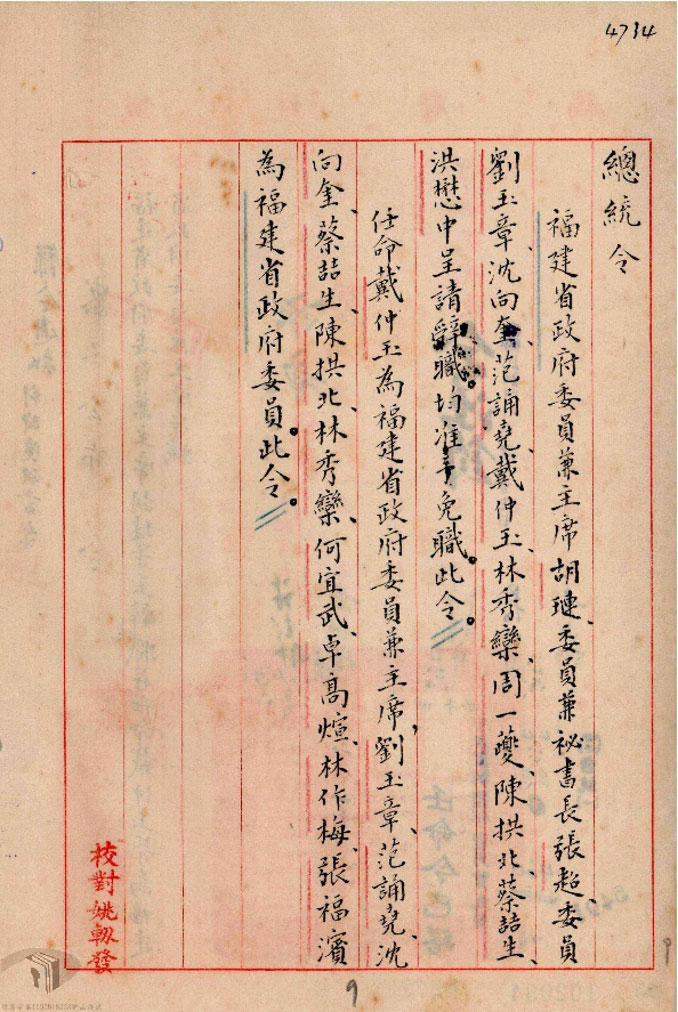 4734
總統令
福建省政府委員兼主席胡璉、委員兼祕書長張超、委員
劉玉章、沈向奎、范誦堯、戴仲玉、林秀欒、周一夔、陳拱北、蔡喆生、
洪懋中呈請辭職。均准予免職。此令。
任命戴仲玉為福建省政府委員兼主席，劉玉章、范誦堯、沈
向奎、蔡喆生、陳拱北、林秀欒、何宜武、卓高煊、林作梅、張福濱
為福建省政府委員。此令。
校對姚軔發
9